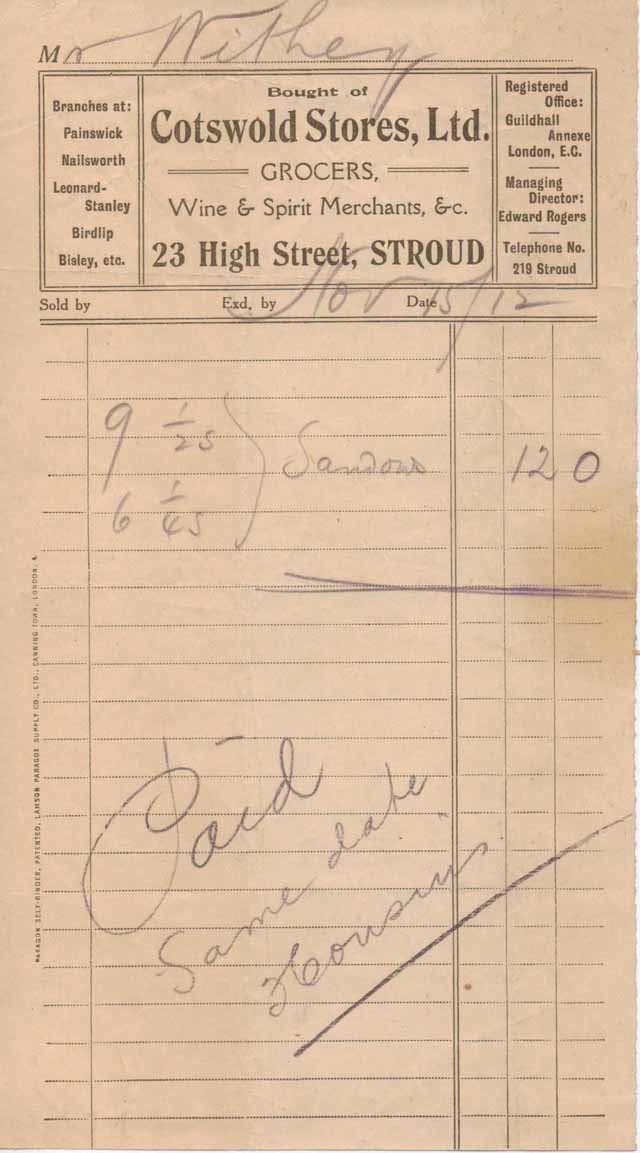 Mr Withey
Branches at:
Painswick
Nailsworth
Leonard-
Stanley
Birdlip
Bisley, etc.
Bought of
Cotswold Stores, Ltd.
GROCERS,
Wine & Spirit Merchants, &c.
23 High Street, STROUD
Registered
Office:
Guildhall
Annexe
London, E.C.
Managing
Director:
Edward Rogers
Telephone No.
219 Stroud
Sold by Exd, by Date Nov 15/12
9 1/2s
6 1/4s
Sandows 12 0
Paid
Same date
PARAGON SELF-BINDER, PATENTED, LAMSON PARAGON SUPPLY CO., LTD., CANNING TOWN, LONDON, E.